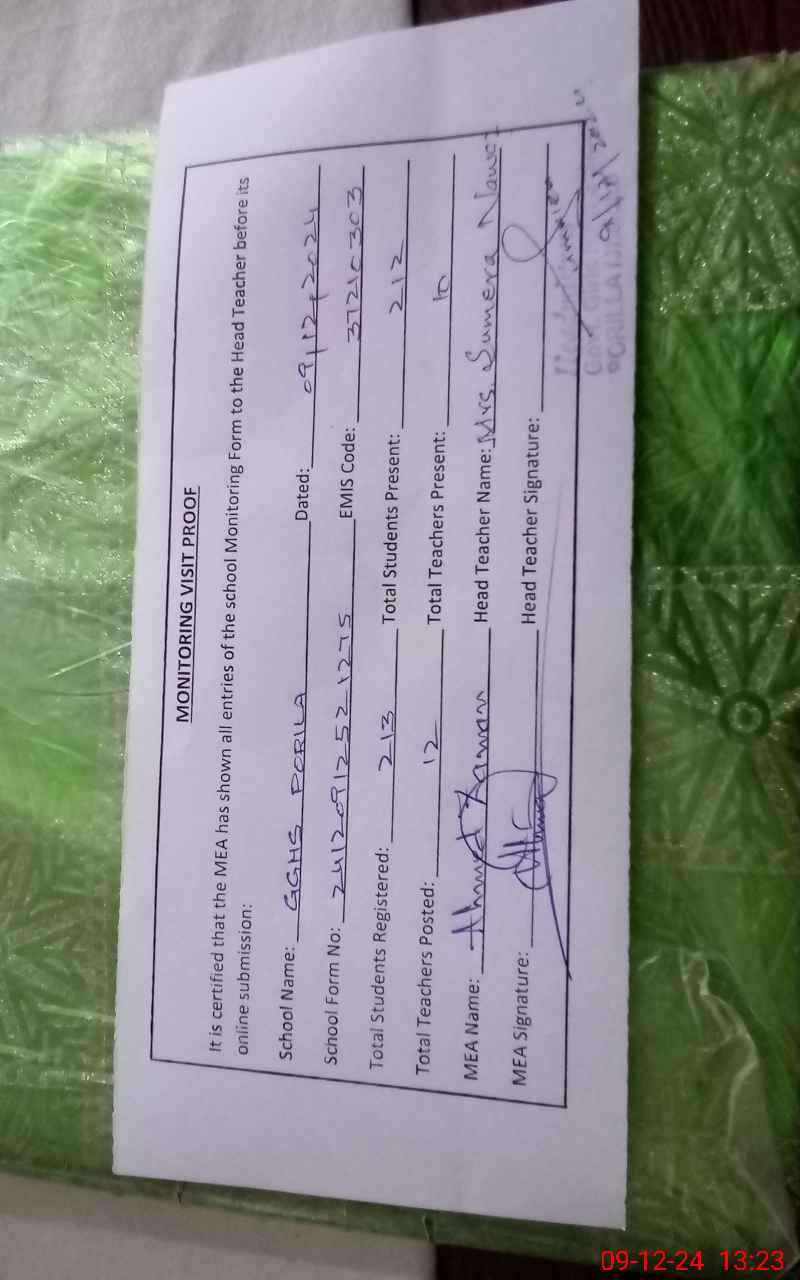 MONITORING VISIT PROOF
It is certified that the MEA has shown all entries of the school Monitoring Form to the Head Teacher before its
online submission:
School Name: GGHS PORILA Dated: 09/12/2024
School Form No: 2412091252 1275 EMIS Code: 37210303
Total Students Registered: 213 Total Students Present: 212
Total Teachers Posted: 12 Total Teachers Present: 10
MEA Name: Ahmed Zaman Head Teacher Name: Mrs. Sumera Nawaz
MEA Signature: Head Teacher Signature:
9/12/2024
09-12-24 13:23